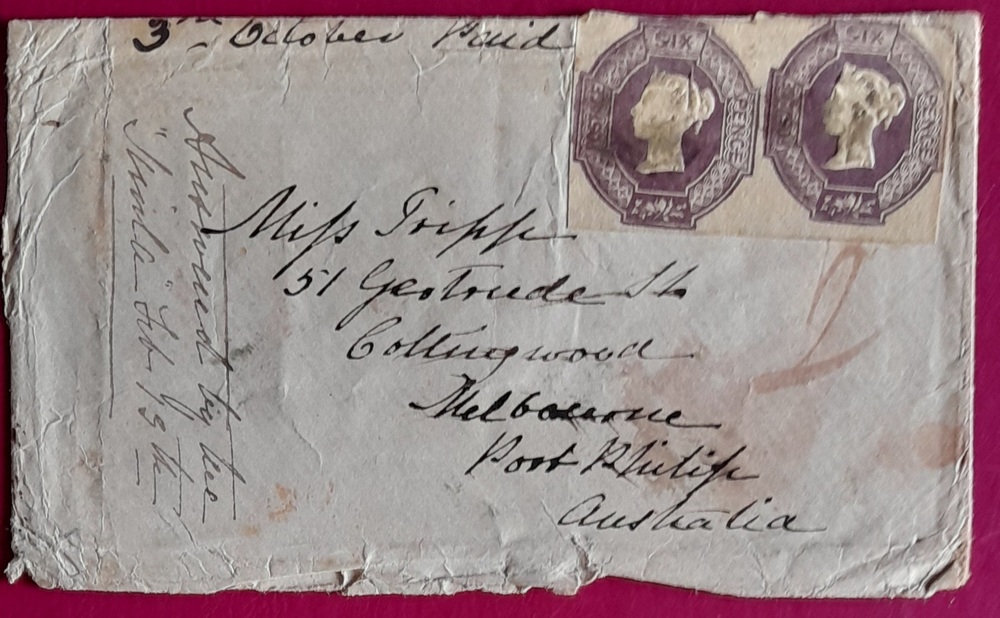 3rd October Paid
SIX PENCE
SIX
Miss Tripp
51 Gertrude St
Collingwood
Melbourne
Port Philip
Australia
Answered by the
"Scinla" Feb 19th